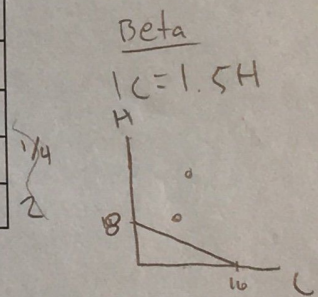 Beta
1C=1.5H
H
1/4
2
8
16
C